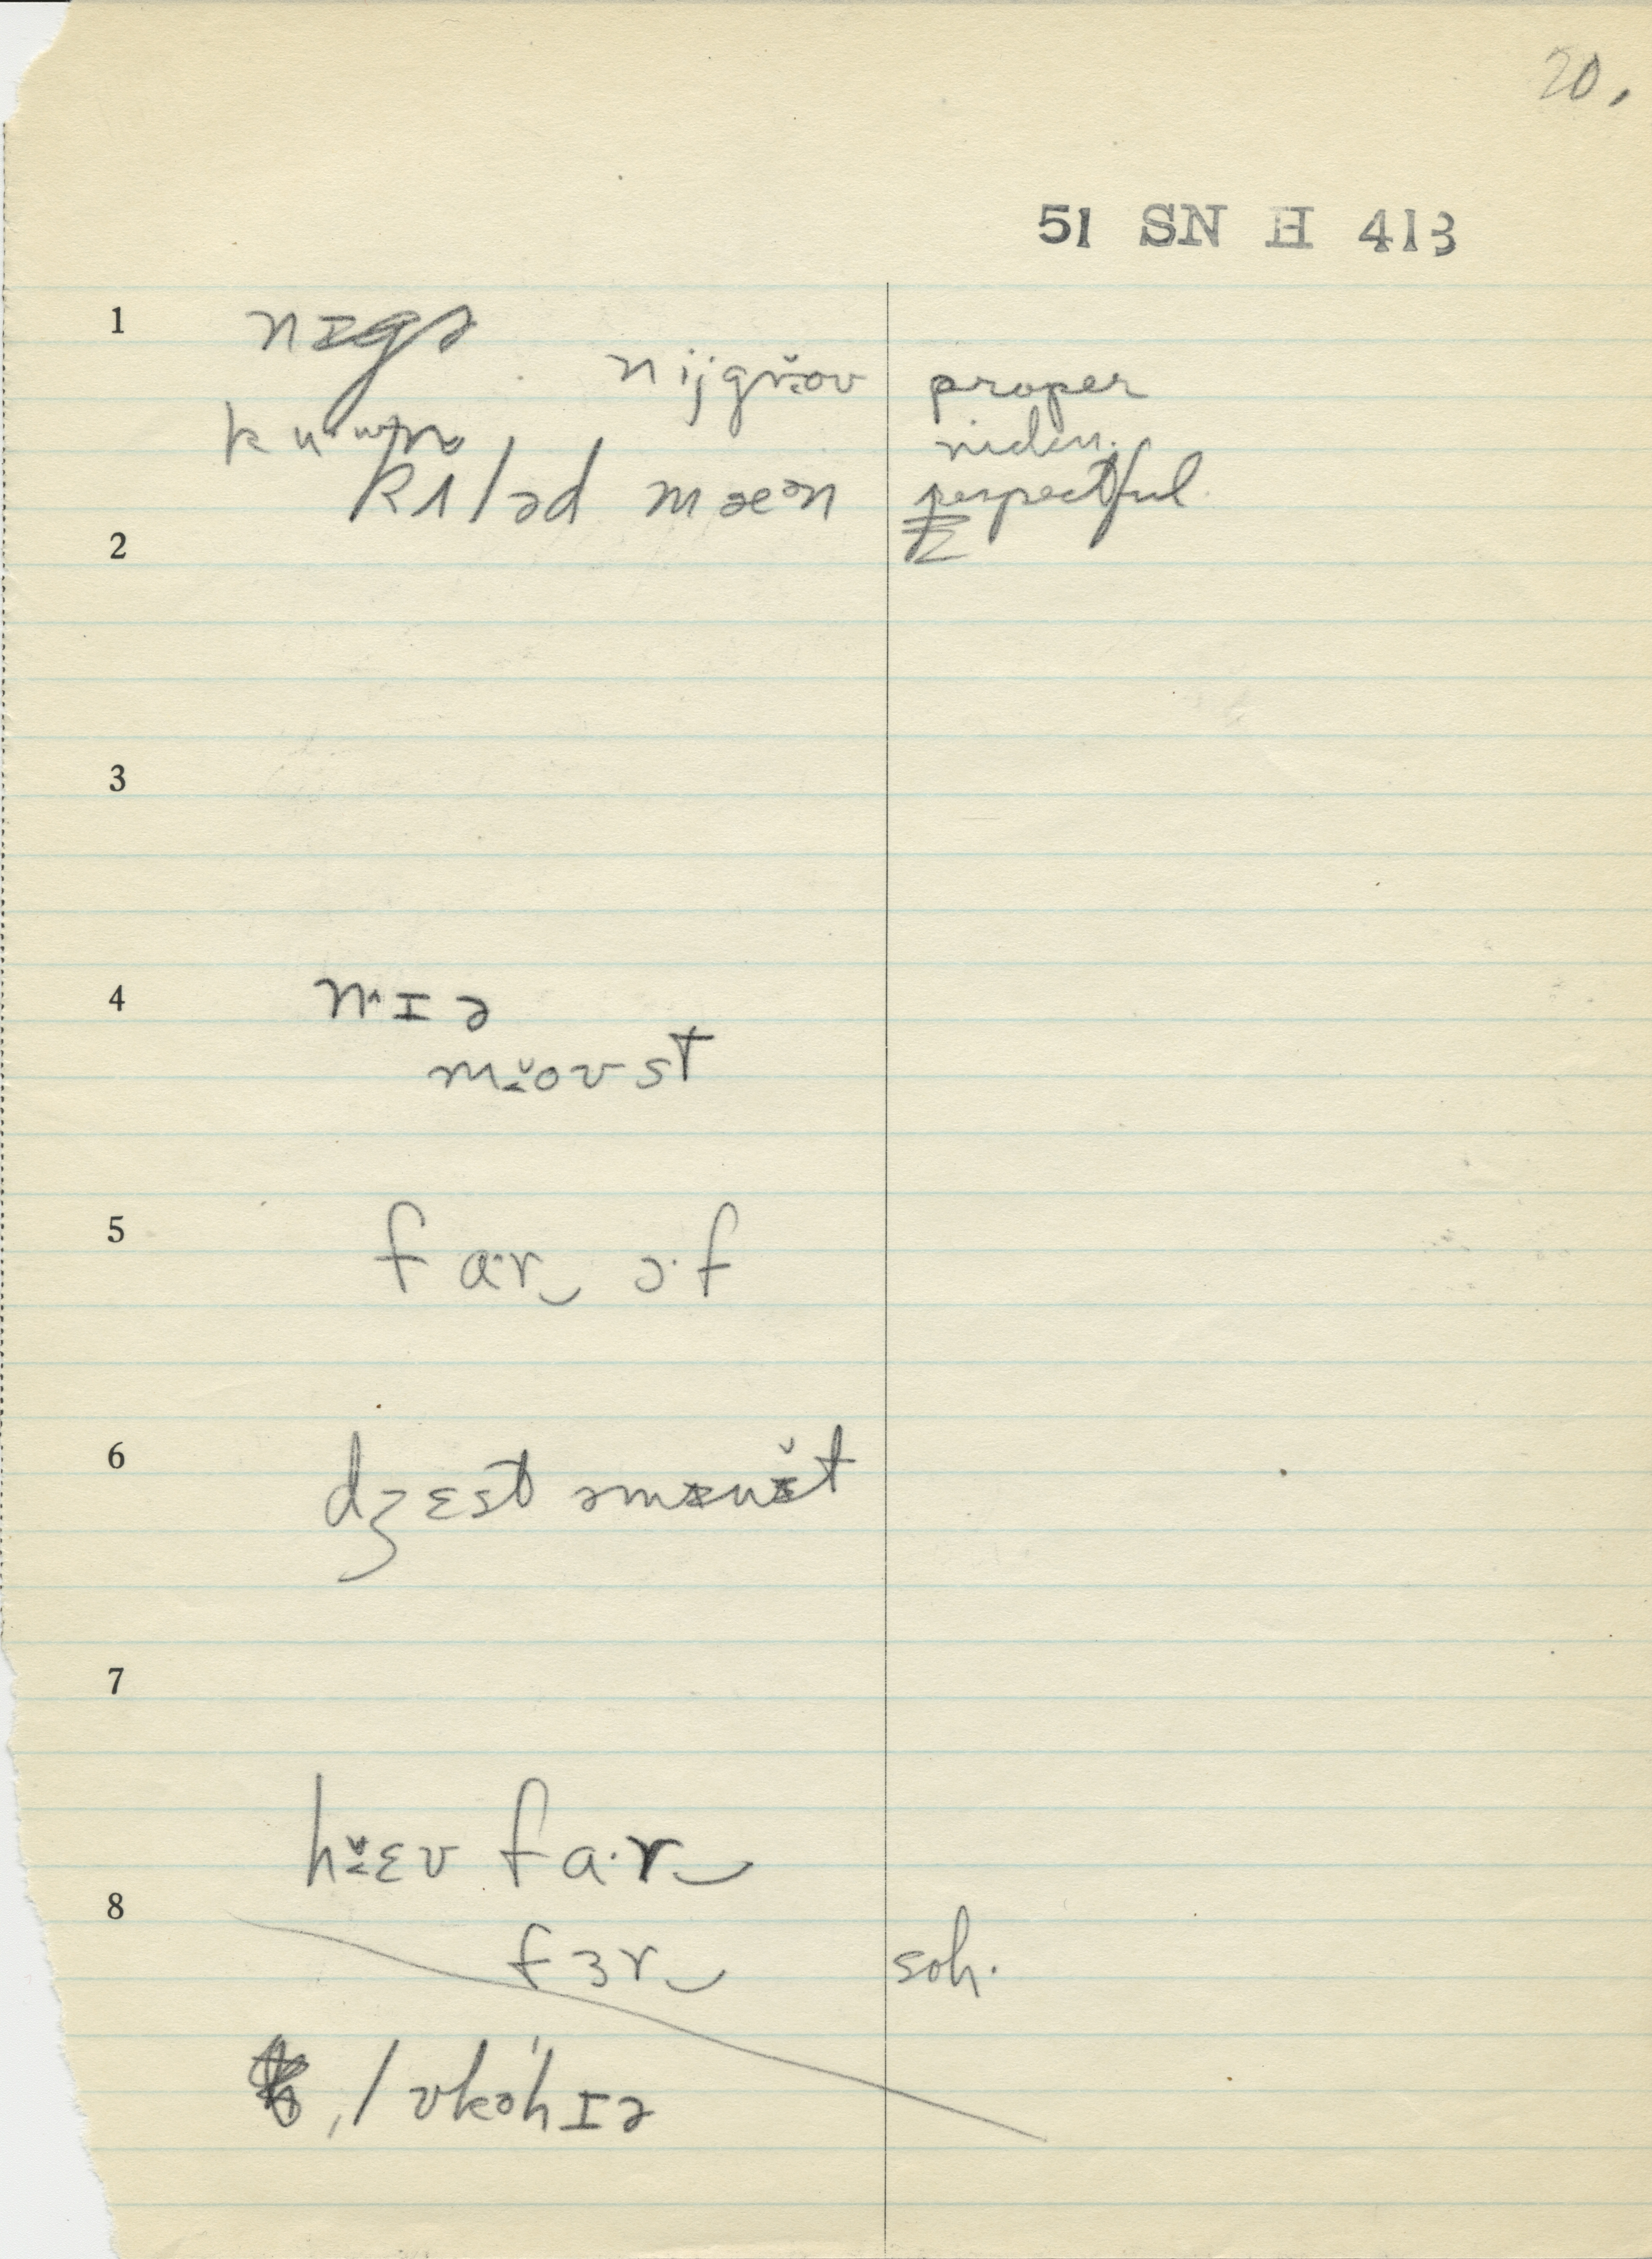 20.
51 SN H 413
1
nɪgə
nijgr̆ov proper
ku·wn riden.
kʌləd mæən respectful
2
3
4
n·ɪə
mo̯ʊst
5
fa·r ɔ·f
6
dʒɛst əmɪnɪ̆t
7
hɛv fa·r
8
fɜr soh.
lʊkəhɪə